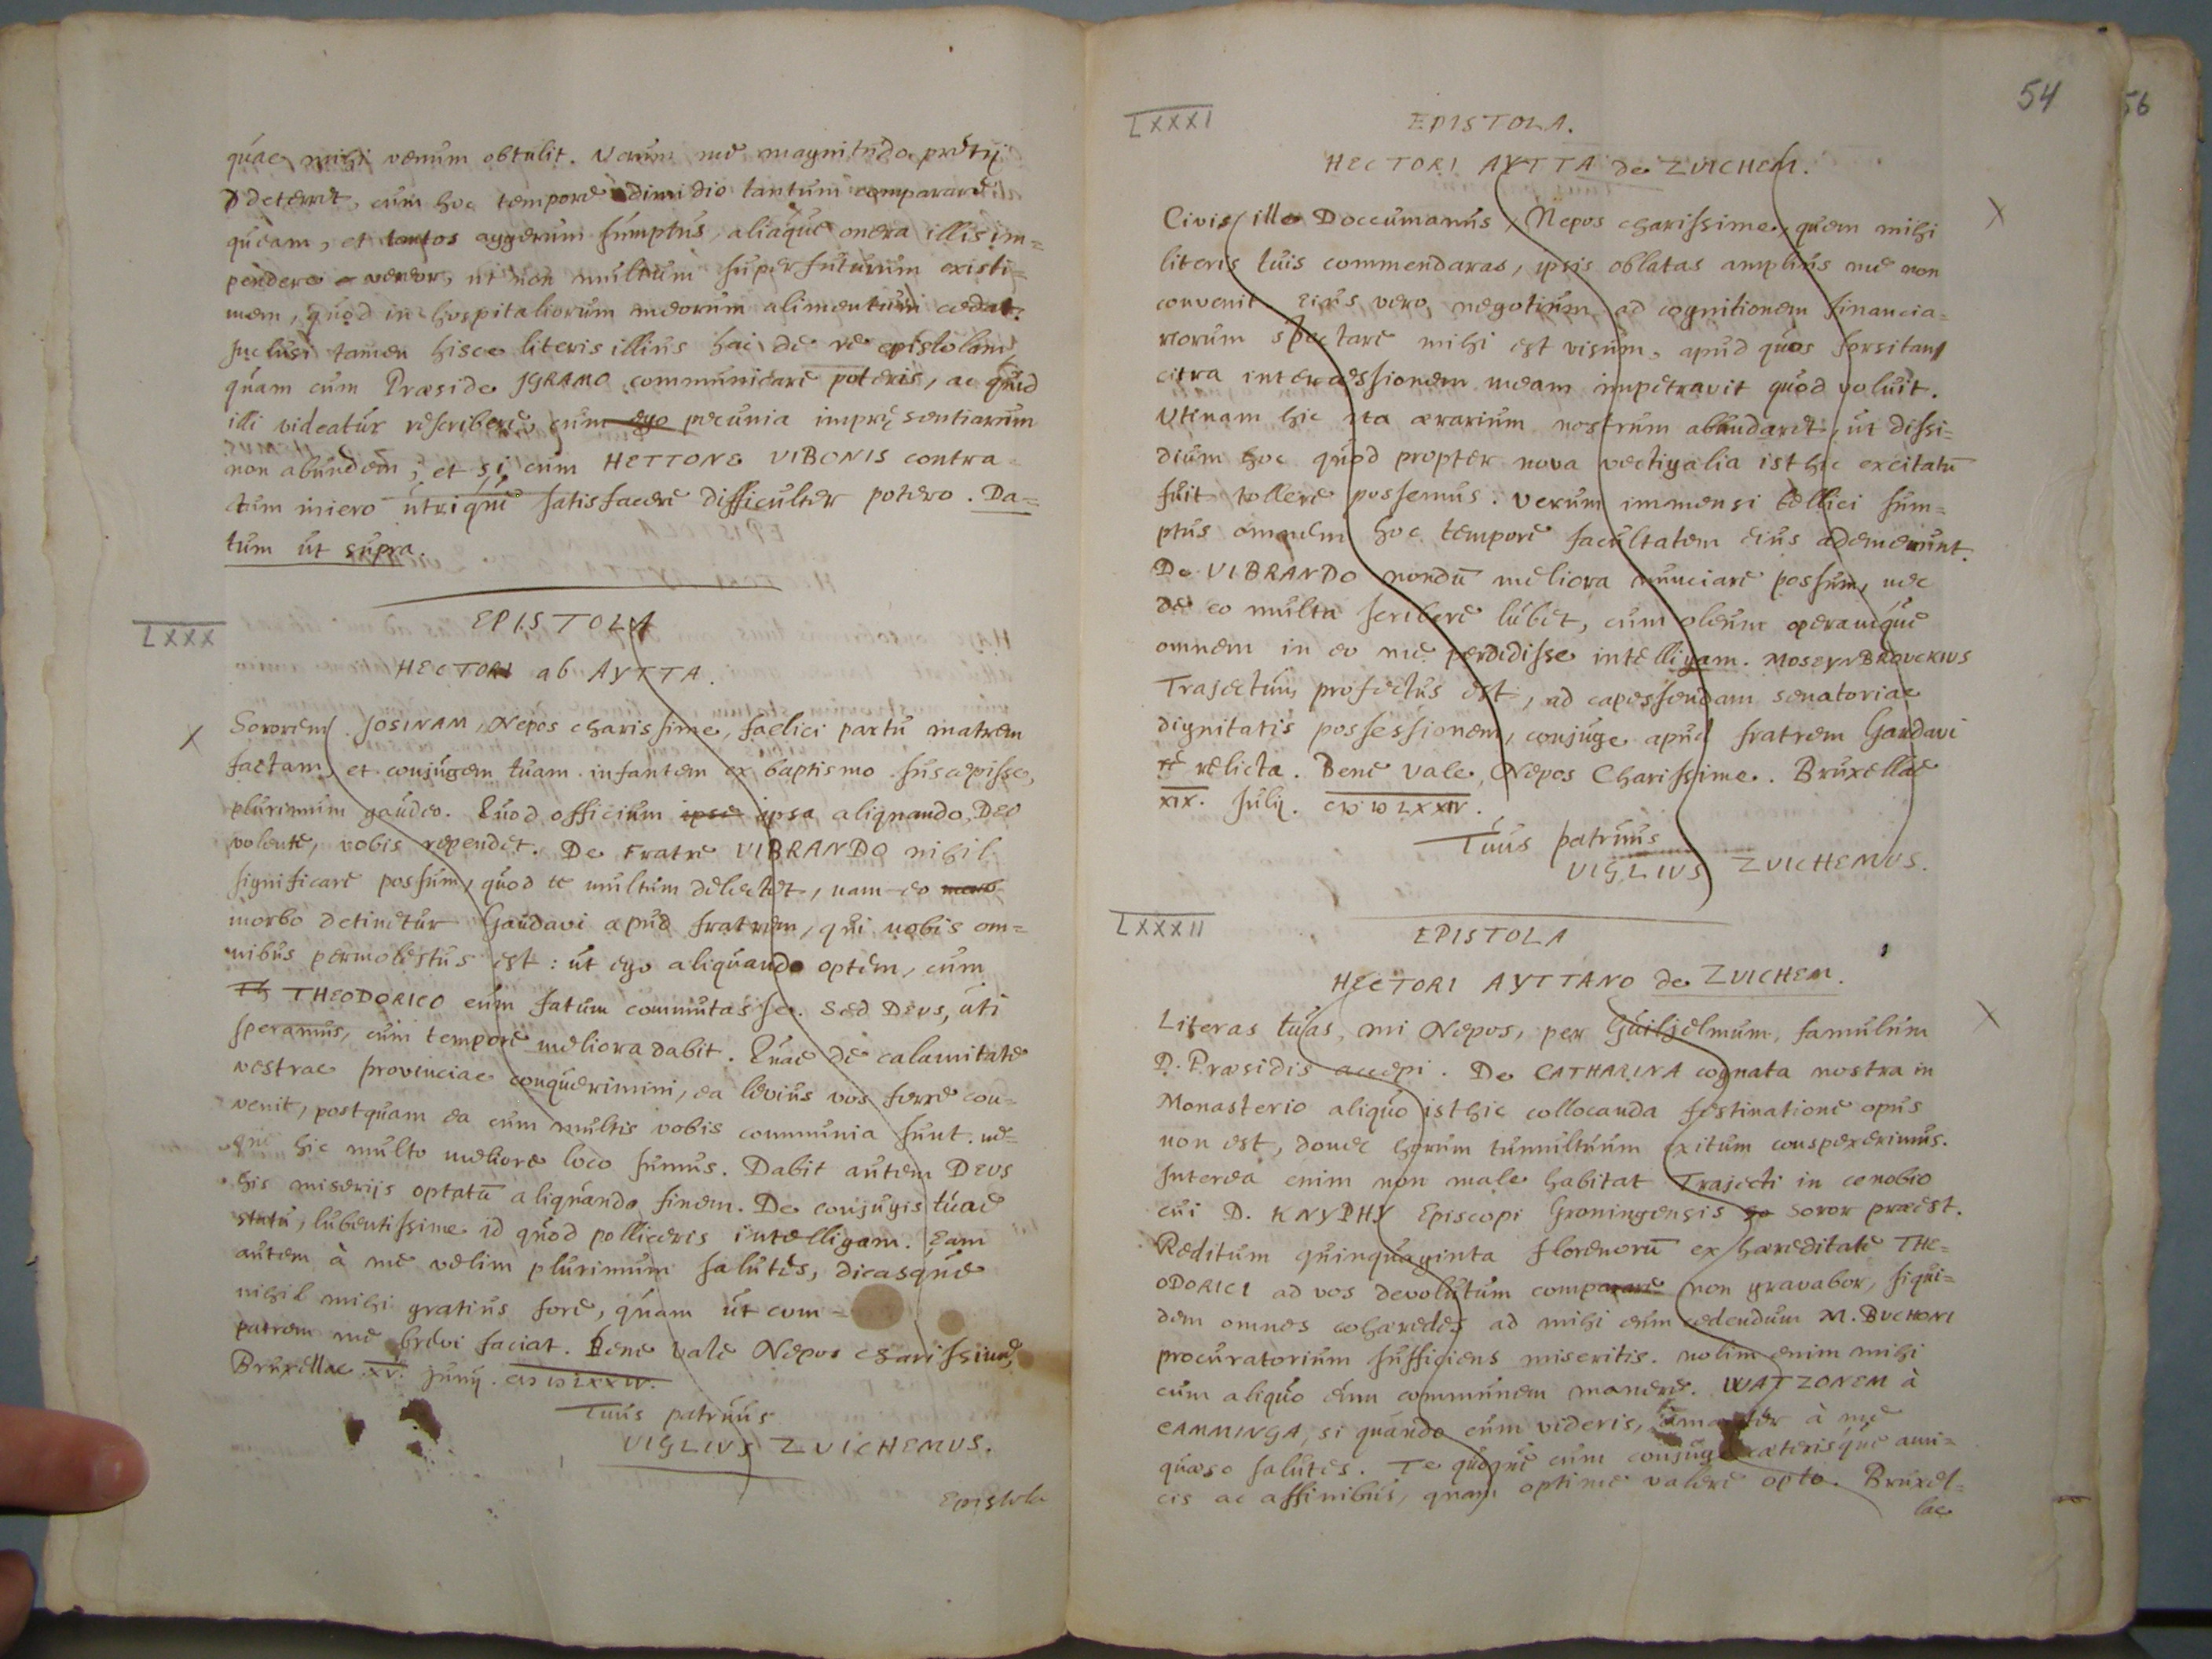 quae mihi venum obtulit. Verum me magnitudo pretij
deterret, cum hoc tempore dimidio tantum comparare
queam, et tantos aggerum sumptus, aliaque onera illis im=
pendere vereor, ut non multum superfuturum existi=
mem, quod in hospitaliorum meorum alimentum cedat.
Inclusi tamen hisce literis illius hac de re epistolam
quam cum Praeside IGRAMO communicare poteris, ac quid
illi videatur rescribere, cum ego pecunia impręsentiarum
non abundem; et si cum HETTONE VIBONIS contra=
ctum iniero utrique satisfacere difficulter potero. Da=
tum ut supra.
LXXX
EPISTOLA
HECTORI ab AYTTA.
X
Sororem JOSINAM, Nepos charissime, faelici partu matrem
factam, et conjugem tuam infantem ex baptismo suscepisse,
plurimum gaudeo. Quod officium ipse ipsa aliquando, DEO
volente, vobis rependet. De Fratre VIBRANDO nihil
significare possum, quod te multum delectet, nam eo morb
morbo detinetur Gandavi apud fratrem, qui nobis om=
nibus permolestus est: ut ego aliquando optem, cum
Th THEODORICO eum fatum commutasse. Sed DEUS, uti
speramus, cum tempore meliora dabit. Quae de calamitate
vestrae provinciae conquerimini, ea levius vos ferre con=
venit, postquam ea cum multis vobis communia sunt. ne=
que hic multo meliore loco sumus. Dabit autem DEUS
his miserijs optatū aliquando finem. De conjugis tuae
statu, lubentissime id quod polliceris intelligam. Eam
autem à me velim plurimum salutes, dicasque
nihil mihi gratius fore, quam ut com=
patrem me brevi faciat. Bene vale Nepos charissime,
Bruxellae XV. Junij. CIↃ IↃ LXXIV.
Tuus patruus
VIGLIUS ZUICHEMUS.
Epistola
54
56
LXXXI
EPISTOLA.
HECTORI AYTTA de ZUICHEM.
X
Civis ille Doccumanus, Nepos charissime, quem mihi
literis tuis commendaras, ipsis oblatas amplius me non
convenit eius vero negotium ad cognitionem financia=
riorum spectare mihi est visum, apud quos forsitan
citra intercessionem meam impetravit quod voluit.
Utinam hic ita aerarium nostrum abundaret, ut dissi=
dium hoc quod propter nova vectigalia isthic excitatū
fuit tollere possemus. Verum immensi bellici sum=
ptus omnem hoc tempore facultatem eius ademerunt.
De VIBRANDO nondū meliora nunciare possum, nec
de eo multa scribere lubet, cum oleum operamque
omnem in eo me perdidisse intelligam. MOSEYNBROUCKIUS
Trajectum profectus est, ad capessendam senatoriae
dignitatis possessionem, conjuge apud fratrem Gandavi
te relicta. Bene vale, Nepos Charissime. Bruxellae
XIX. Julij. CIↃ IↃ LXXIV.
Tuus patruus
VIGLIUS ZUICHEMUS.
LXXXII
EPISTOLA
HECTORI AYTTANO de ZUICHEM.
X
Literas tuas, mi Nepos, per Guilielmum, famulum
D. Praesidis accepi. De CATHARINA cognata nostra in
Monasterio aliquo isthic collocanda festinatione opus
non est, donec horum tumultuum exitum conspexerimus.
Interea enim non male habitat Trajecti in cenobio
cui D. KNYPHY Episcopi Groningensis so soror praeest.
Reditum quinquaginta florenorū ex haereditate THE=
ODORICI ad vos devolutum comparare non gravabor, siqui=
dem omnes cohaeredes ad mihi eum cedendum M. BUCHONI
procuratorium sufficiens miseritis. nolim enim mihi
cum aliquo eum communem manere. WATZONEM à
CAMMINGA, si quando eum videris, amanter à me
quaeso salutes. Te quoque cum conjuge caeterisque ami=
cis ac affinibus, quam optime valere opto. Bruxel=
lae